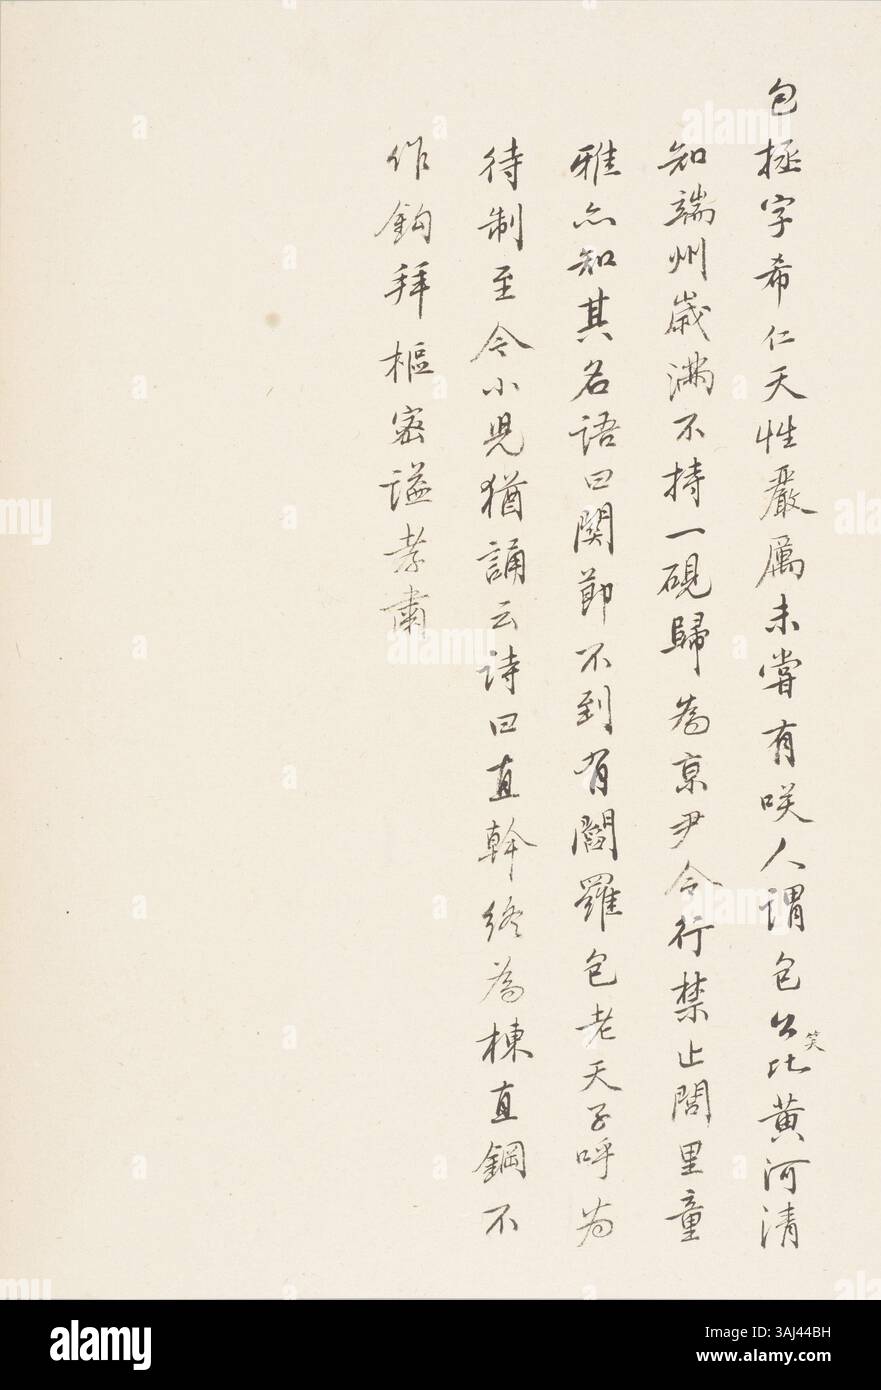 包拯字希仁天性嚴厲未嘗有咲人謂包公笑比黃河清
知端州歲滿不持一硯歸為京尹令行禁止閭里童
雅亦知其名語曰関節不到有閻羅包老天子呼為
待制至今小児猶誦云詩曰直幹終為棟直鋼不
作鈎拜樞密謚孝肅
alamy
Image ID: 3AJ44BH
www.alamy.com